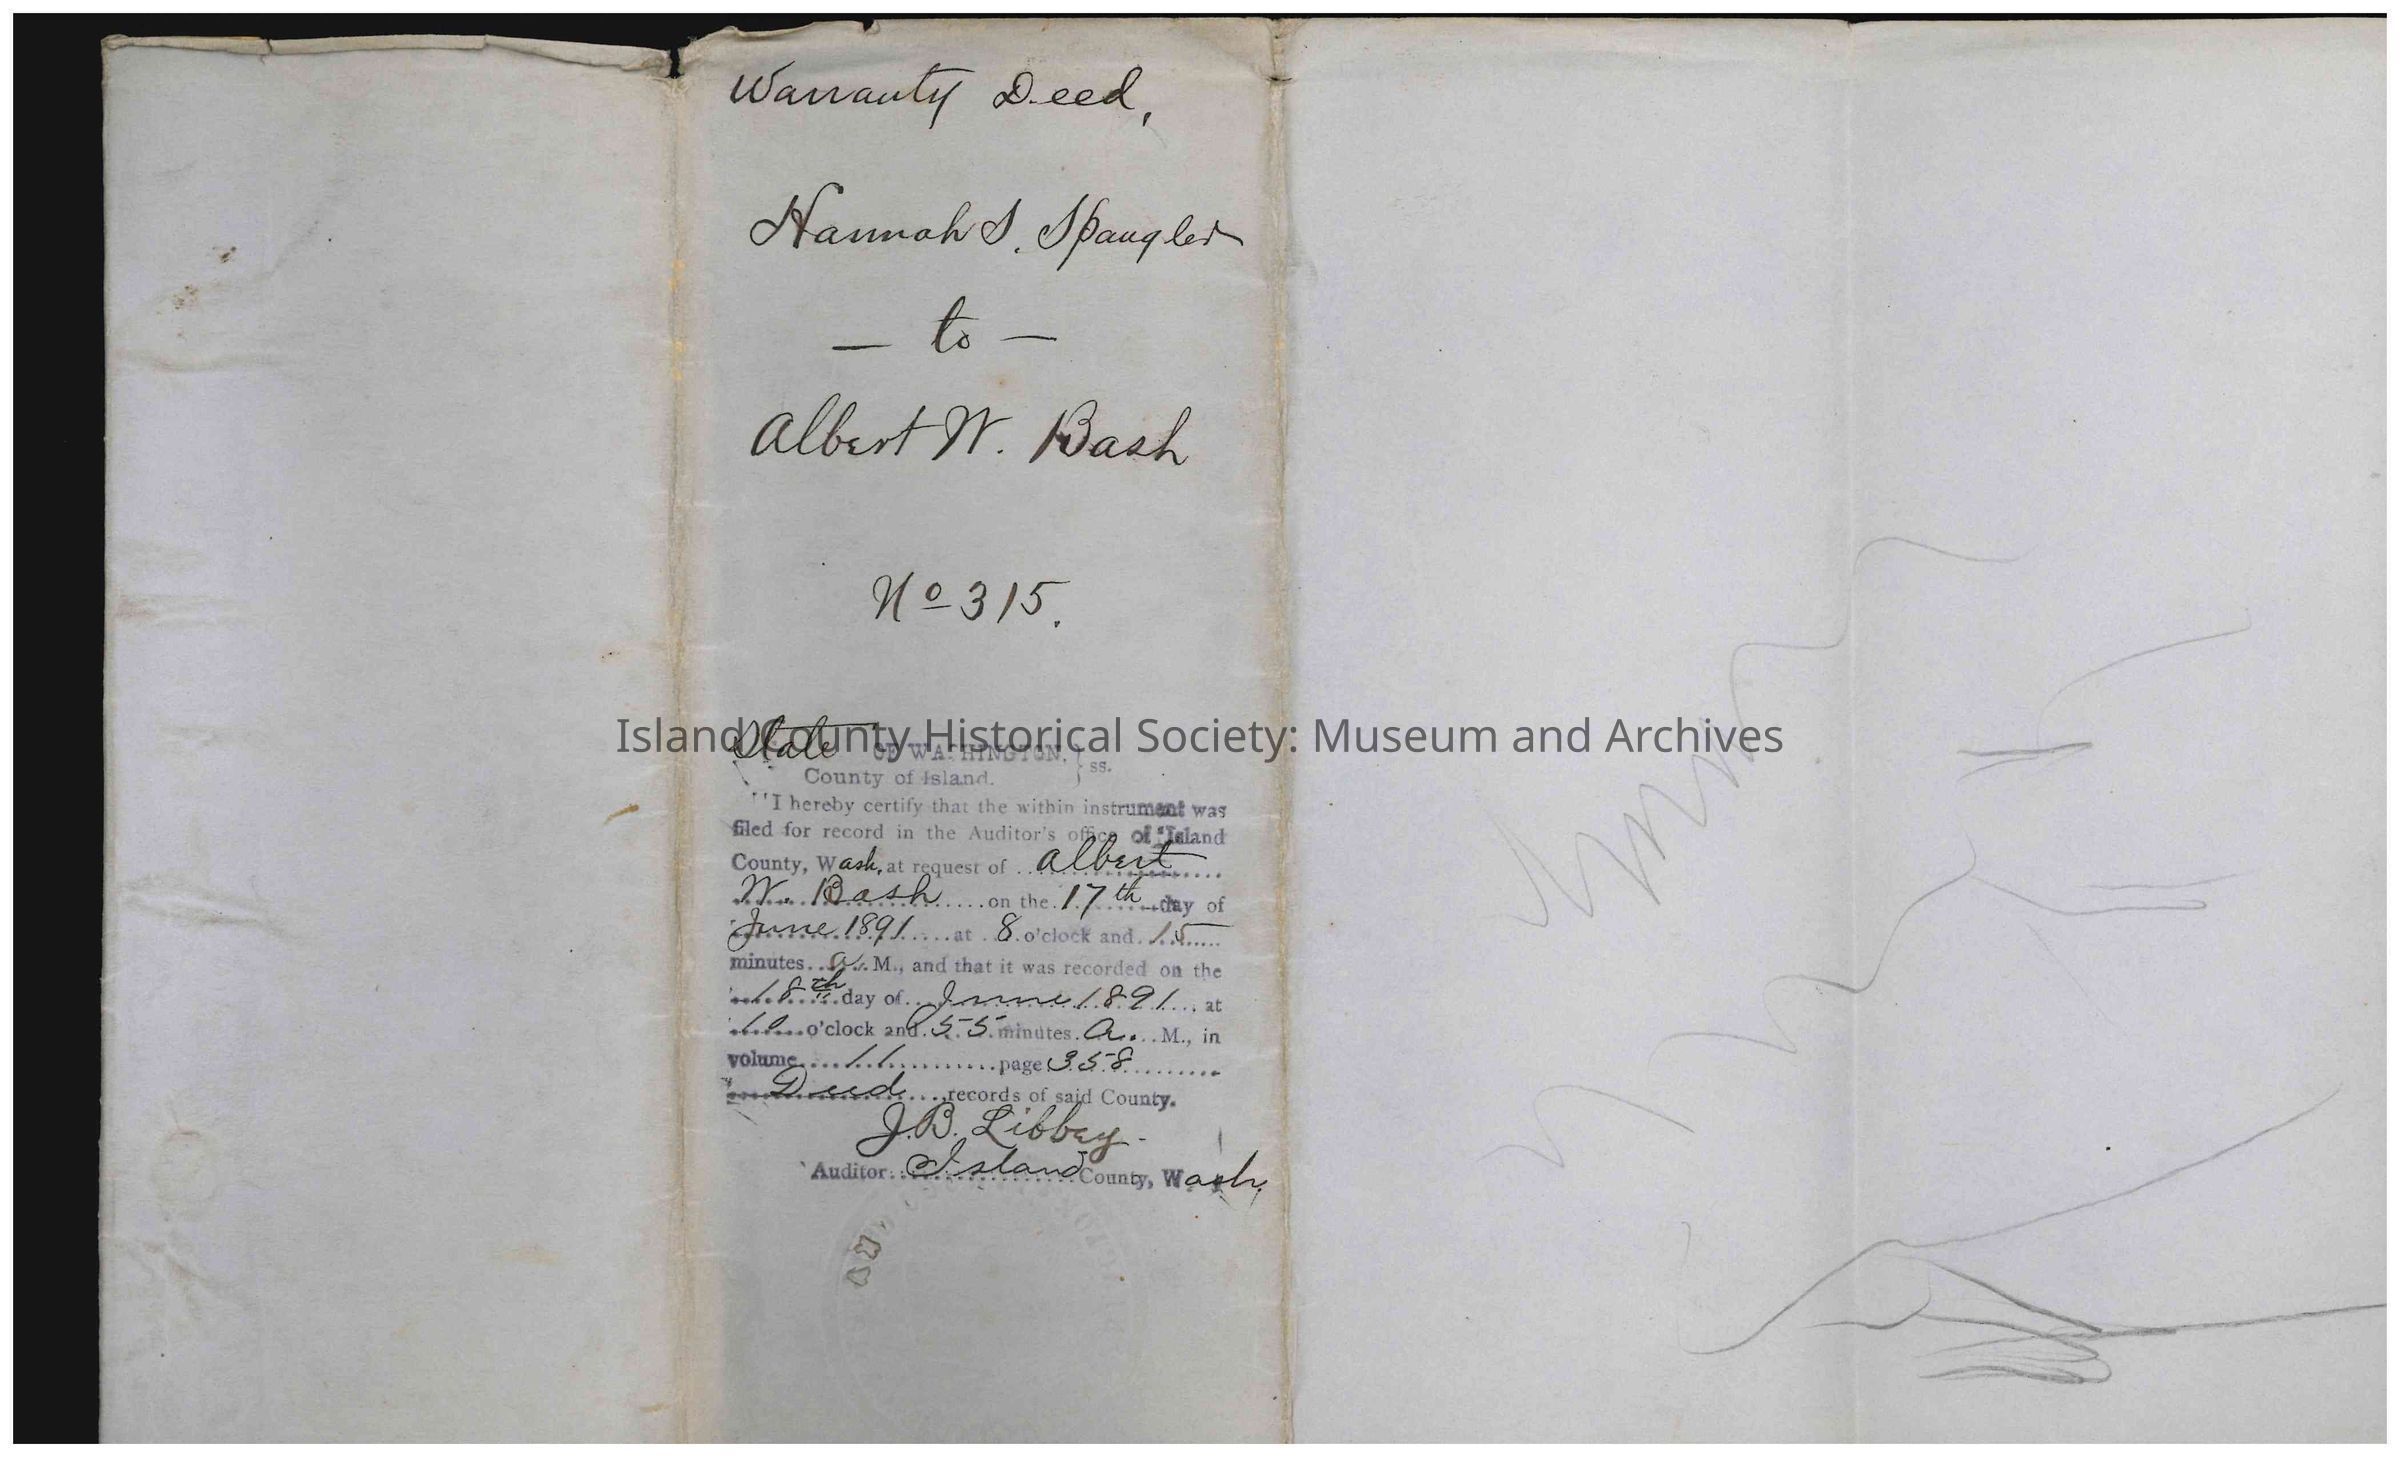 Warranty Deed,
Hannah S. Spangler
— to —
Albert W. Bash
No 315.
Island County Historical Society: Museum and Archives
State OF WASHINGTON, } ss.
County of Island.
"I hereby certify that the within instrument was
filed for record in the Auditor's office of Island
County, Wash, at request of Albert
W. Bash on the 17th day of
June 1891 at 8 o'clock and 15
minutes a. M., and that it was recorded on the
18th day of June 1891 at
10 o'clock and 55 minutes a. M., in
volume 11 page 358
Deed records of said County.
J.B. Libbey
Auditor Island County, Wash.